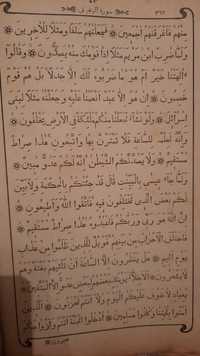 سورة الزخرف
منهم فاغرقناهم اجمعين فجعلناهم سلفا ومثلا للآخرين
ولما ضرب ابن مريم مثلا اذا قومك منه يصدون وقالوا
ءآلهتنا خير ام هو ما ضربوه لك الا جدلا بل هم قوم
خصمون ان هو الا عبد انعمنا عليه وجعلناه مثلا لبنى
اسرائل ولو نشاء لجعلنا منكم ملئكة فى الارض يخلفون
وانه لعلم للساعة فلا تمترن بها واتبعون هذا صراط
مستقيم ولا يصدنكم الشيطن انه لكم عدو مبين
ولما جاء عيسى بالبينت قال قد جئتكم بالحكمة ولابين
لكم بعض الذى تختلفون فيه فاتقوا الله واطيعون
ان الله هو ربى وربكم فاعبدوه هذا صراط مستقيم
فاختلف الاحزاب من بينهم فويل للذين ظلموا من عذاب
يوم اليم هل ينظرون الا الساعة ان تأتيهم بغتة وهم
لا يشعرون الاخلاء يومئذ بعضهم لبعض عدو الا المتقين
يعباد لا خوف عليكم اليوم ولا انتم تحزنون الذين
امنوا بايتنا وكانوا مسلمين ادخلوا الجنة انتم وازواجكم